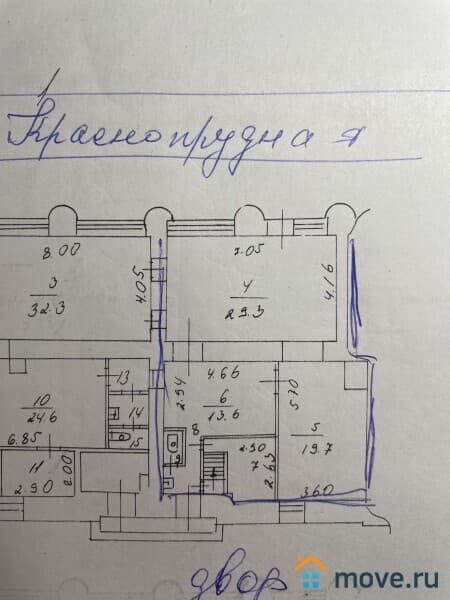 Краснопрудная
8.00
7.05
3
32.3
4.05
4
29.3
4.16
4.66
2.94
6
13.6
5.70
13
10
24.6
14
8
5
19.7
6.85
15
9
2.90
7
2.63
11
2.00
2.90
3.60
двор
move.ru